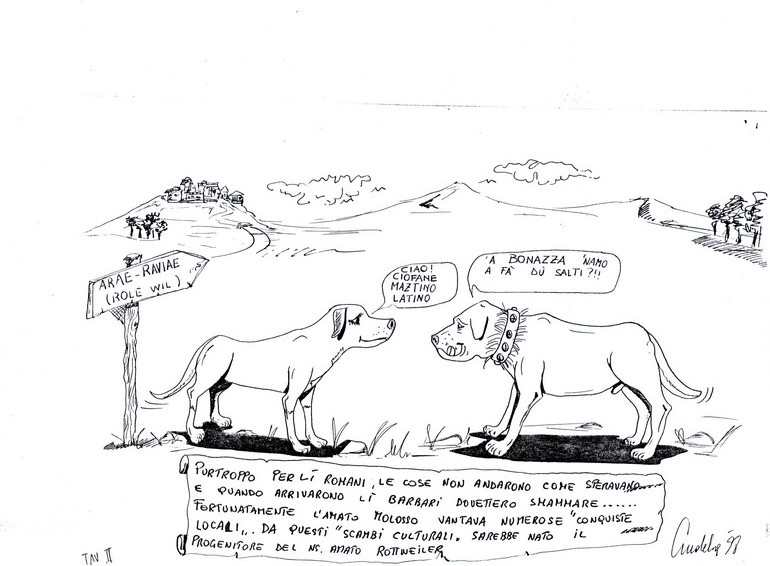 ARAE-RAVIAE
(ROLE WIL)
CIAO!
CIOFANE
MAZTINO
LATINO
'A BONAZZA 'NAMO
A FÀ DÚ SALTI?!!
PURTROPPO PER LÌ ROMANI, LE COSE NON ANDARONO COME SPERAVANO
E QUANDO ARRIVARONO LÌ BARBARI DOVETTERO SMAMMARE......
FORTUNATAMENTE L'AMATO MOLOSSO VANTAVA NUMEROSE "CONQUISTE
LOCALI,, DA QUESTI "SCAMBI CULTURALI" SAREBBE NATO IL
PROGENITORE DEL NS. AMATO ROTTWEILER
TAV II
'98